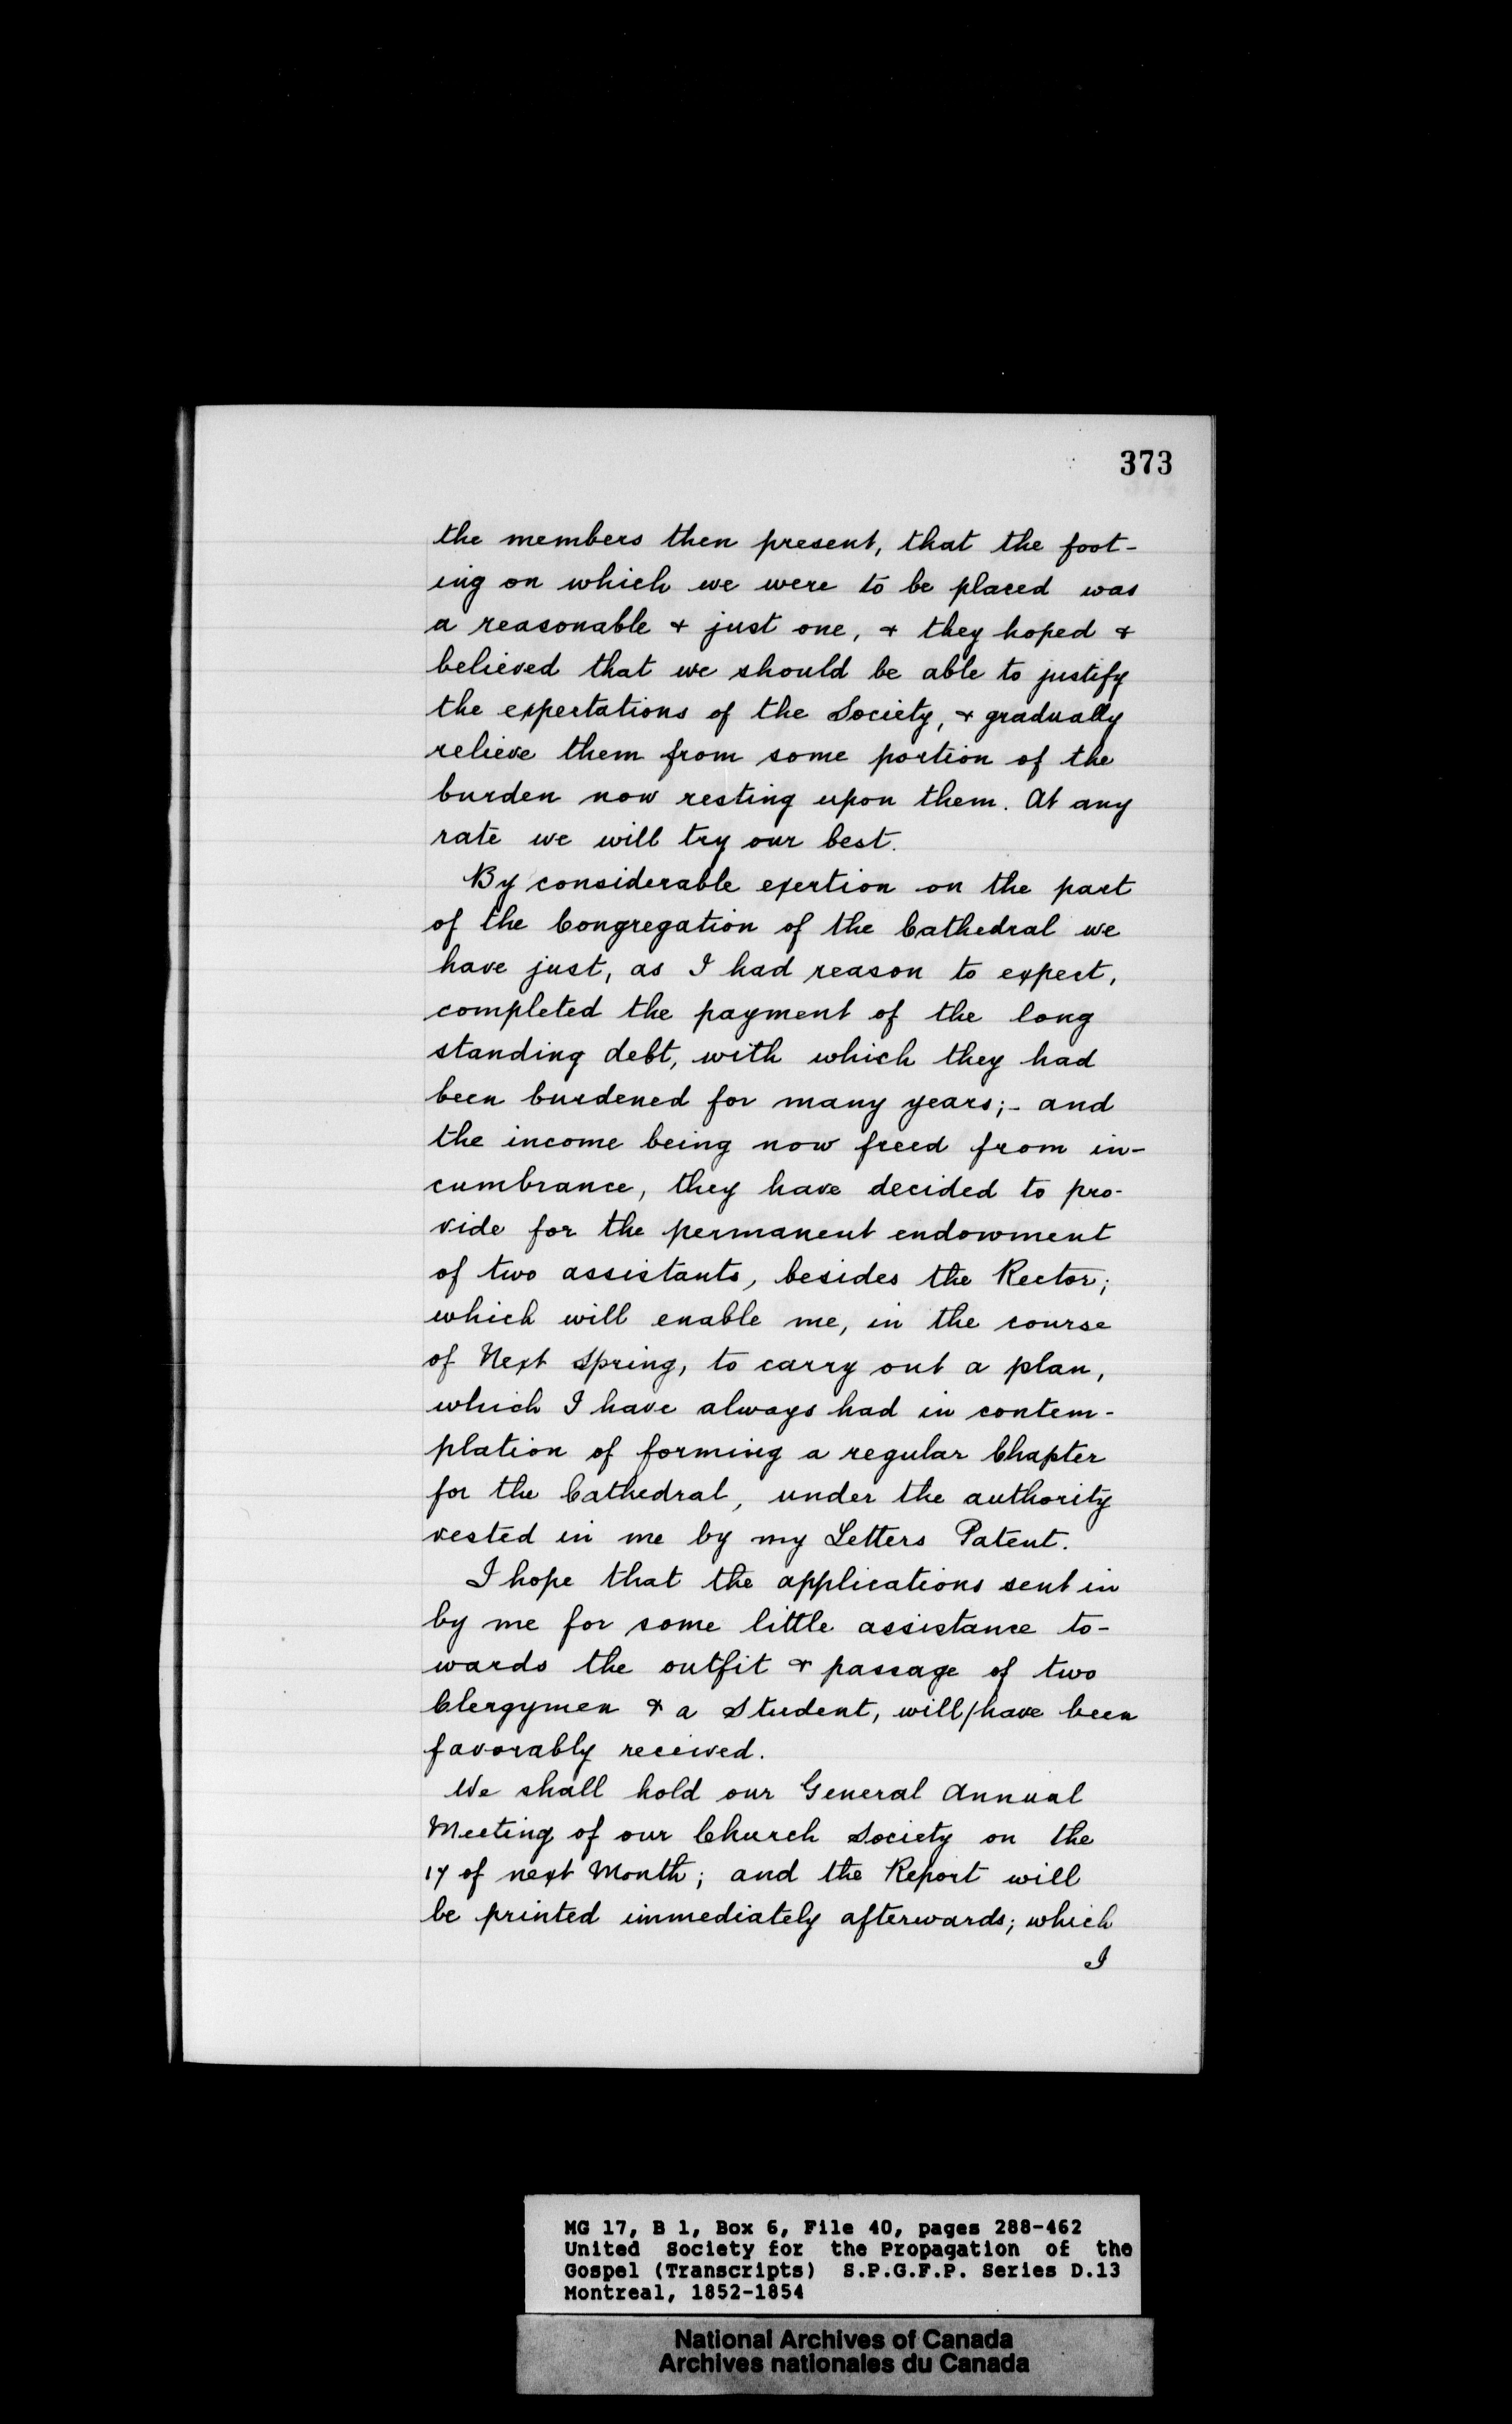 373
the members then present, that the foot-
ing on which we were to be placed was
a reasonable & just one, & they hoped &
believed that we should be able to justify
the expectations of the Society, & gradually
relieve them from some portion of the
burden now resting upon them. At any
rate we will try our best.
By considerable exertion on the part
of the Congregation of the Cathedral we
have just, as I had reason to expect,
completed the payment of the long
standing debt, with which they had
been burdened for many years;- and
the income being now freed from in-
cumbrance, they have decided to pro-
vide for the permanent endowment
of two assistants, besides the Rector;
which will enable me, in the course
of Next Spring, to carry out a plan,
which I have always had in contem-
plation of forming a regular Chapter
for the Cathedral, under the authority
vested in me by my Letters Patent.
I hope that the applications sent in
by me for some little assistance to-
wards the outfit & passage of two
Clergymen & a Student, will/have been
favorably received.
We shall hold our General Annual
Meeting of our Church Society on the
17 of next Month; and the Report will
be printed immediately afterwards; which
I
MG 17, B 1, Box 6, File 40, pages 288-462
United Society for the Propagation of the
Gospel (Transcripts) S.P.G.F.P. Series D.13
Montreal, 1852-1854
National Archives of Canada
Archives nationales du Canada